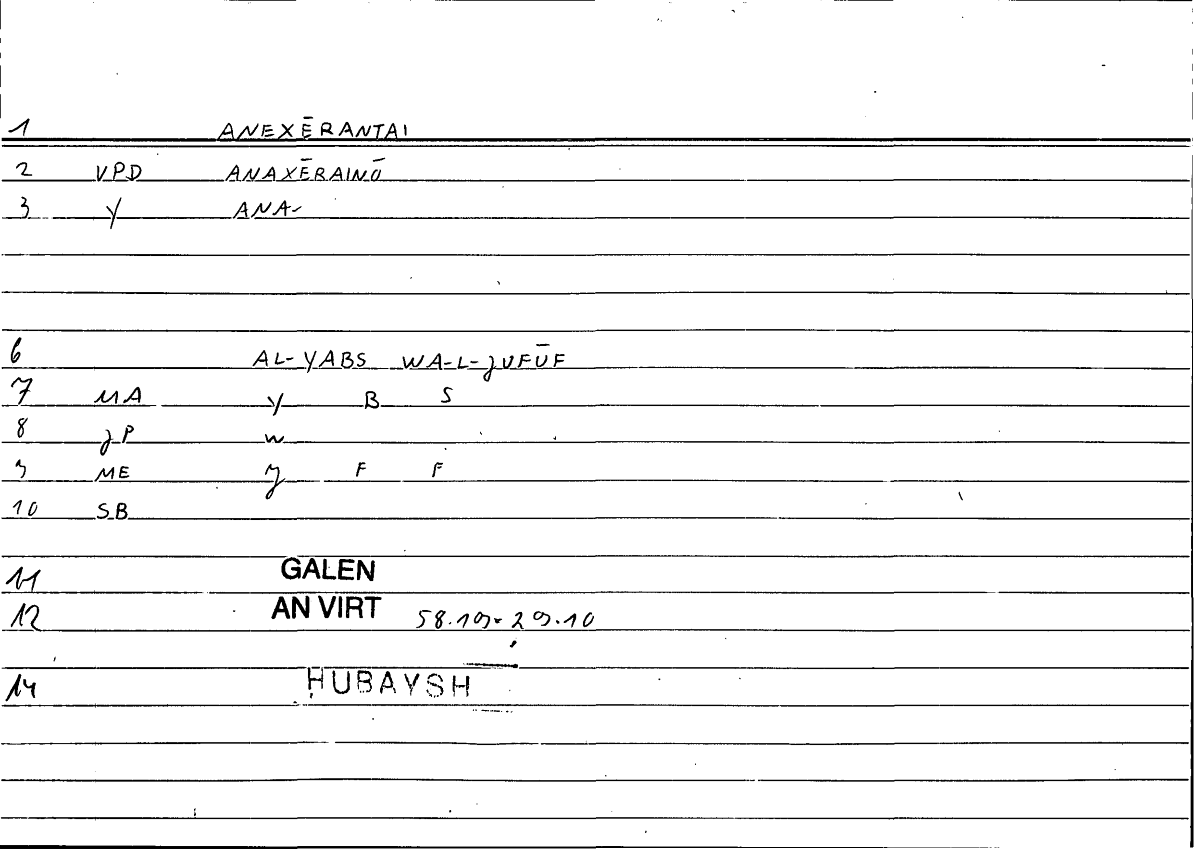 1 ANEXĒRANTAI
2 VPD ANAXĒRAINŌ
3 Y ANA-
6 AL-YABS WA-L-JUFŪF
7 MA Y B S
8 JP W
9 ME J F F
10 SB
11 GALEN
12 AN VIRT 58.19=29.10
14 ḤUBAYSH